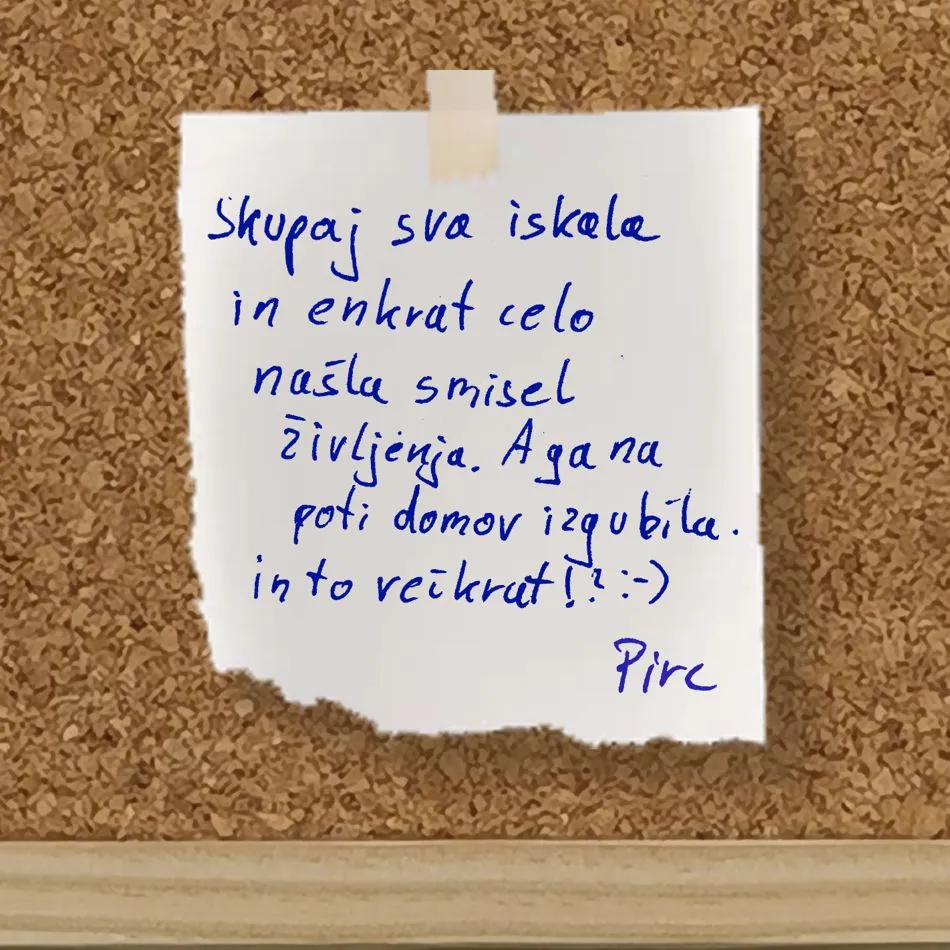 Skupaj sva iskala
in enkrat celo
našla smisel
življenja. A ga na
poti domov izgubila.
in to večkrat!? :-)
Pirc